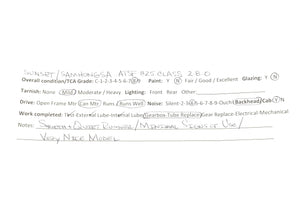 SUNSET/SAMHONGSA ATSF 825 CLASS 2-8-0
Overall condition/TCA Grade: C-1-2-3-4-5-6-7-8 Paint: Y N Fair / Good / Excellent Glazing: Y N
Tarnish: None Mild / Moderate / Heavy Lighting: Front Rear Other
Drive: Open Frame Mtr Can Mtr Runs Runs Well Noise: Silent-2- -6-7-8-9-Ouch! Backhead/Cab Y N
Work completed: Test-External Lube-Internal Lube-Gearbox-Tube Replace-Gear Replace-Electrical-Mechanical
Notes: Smooth & Quiet Runner/Minimal Signs of Use/
Very Nice Model